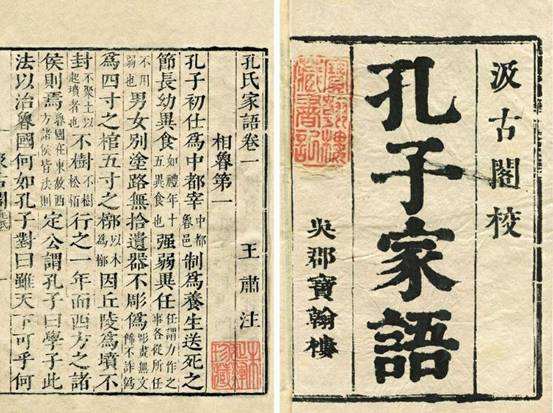 汲古閣校
孔子家語
吳郡寶翰樓
孔氏家語卷一
相魯第一 王肅注
孔子初仕為中都宰中都魯邑制為養生送死之
節長幼異食如禮年十五異食強弱異任任謂力作之事各從所任
不用弱也男女別塗路無拾遺器不彫偽彫畫無文飾不詐偽
為四寸之棺五寸之椁以木為椁因丘陵為墳不
封不聚土以起墳者也不樹不樹松栢行之一年而西方之諸
侯則焉魯國在東故西方諸侯皆法則定公謂孔子曰學子此
法以治魯國何如孔子對曰雖天下可乎何